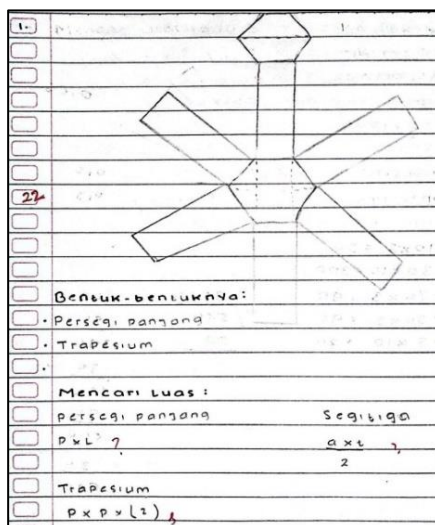 1.
22
Bentuk-bentuknya:
• Persegi panjang
• Trapesium
•
Mencari Luas :
persegi panjang Segitiga
P x L ? a x t
2
Trapesium
P x P x (2)